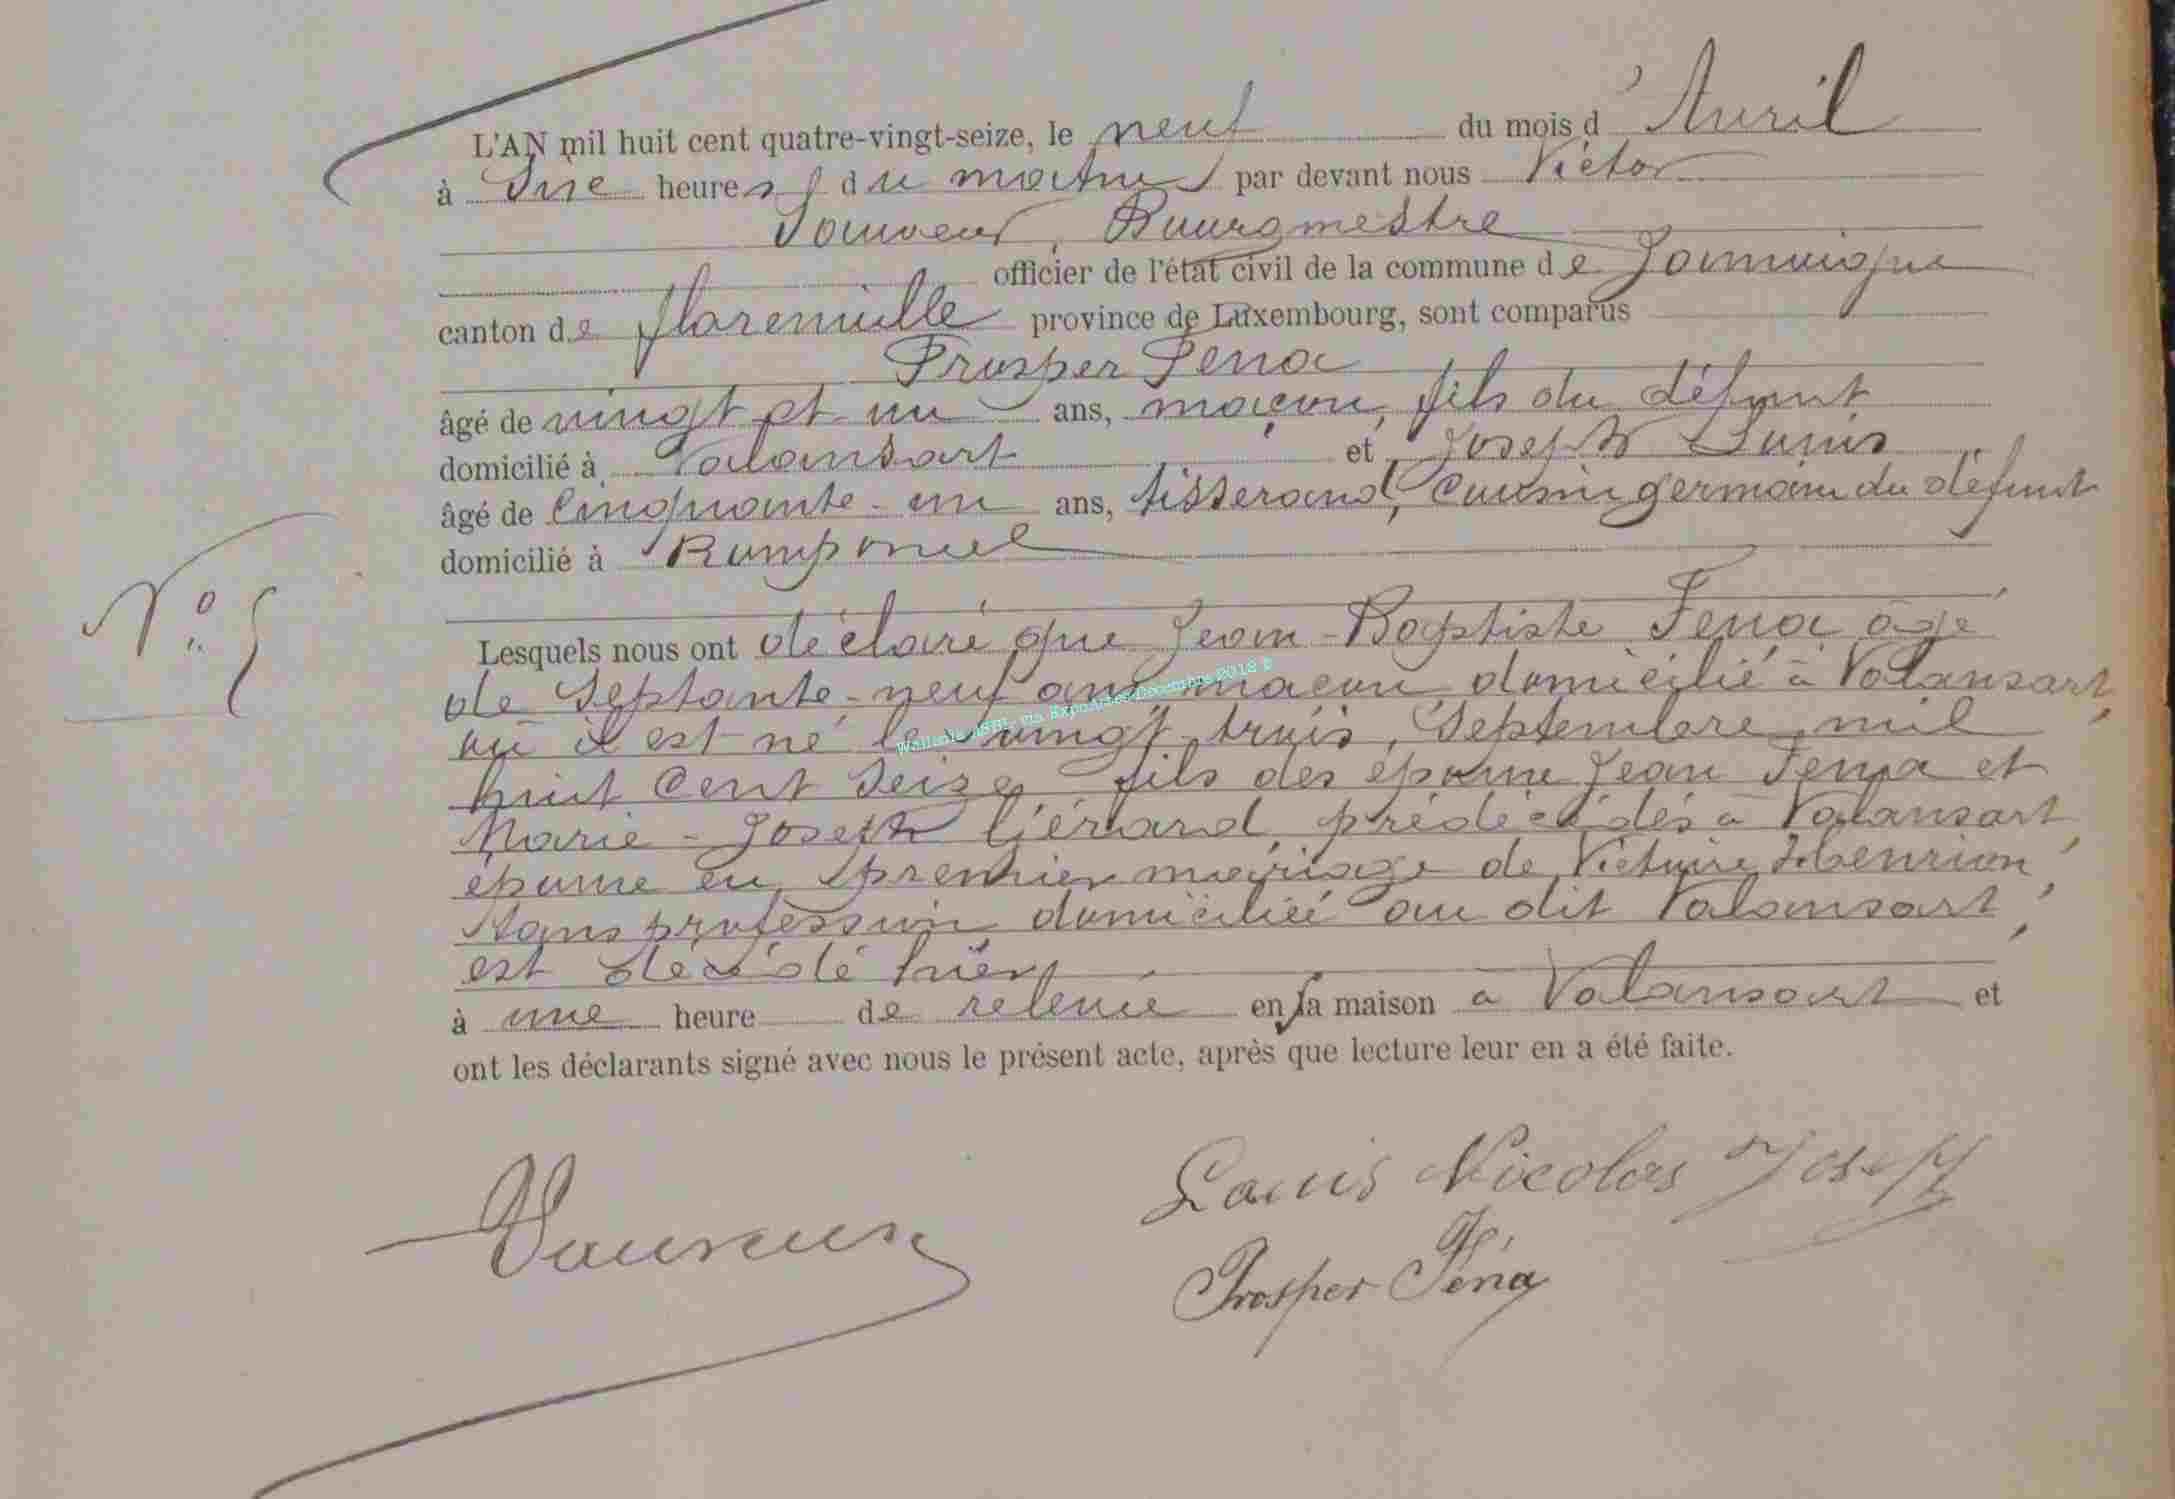 L'AN mil huit cent quatre-vingt-seize, le neuf du mois d'Avril
à dix heures du matin par devant nous Victor
Sauveur, Bourgmestre
officier de l'état civil de la commune de Jamoigne
canton de Florenville province de Luxembourg, sont comparus
Prosper Féna
âgé de vingt et un ans, maçon, fils du défunt
domicilié à Valansart et Joseph Louis
âgé de Cinquante-un ans, tisserand, Cousin germain du défunt
domicilié à Romponcel
N° 5
Lesquels nous ont déclaré que Jean-Baptiste Féna âgé
de Septante-neuf ans maçon domicilié à Valansart,
où il est né le vingt trois, Septembre mil
huit Cent Seize fils des époux Jean Féna et
Marie-Joseph Gérard, prédécédés à Valansart,
époux en premier mariage de Victoire Henrion,
sans profession domiciliée au dit Valansart,
est décédé hier
à une heure de relevée en sa maison à Valansart et
ont les déclarants signé avec nous le présent acte, après que lecture leur en a été faite.
Louis Nicolas Joseph
Sauveur
Prosper Féna